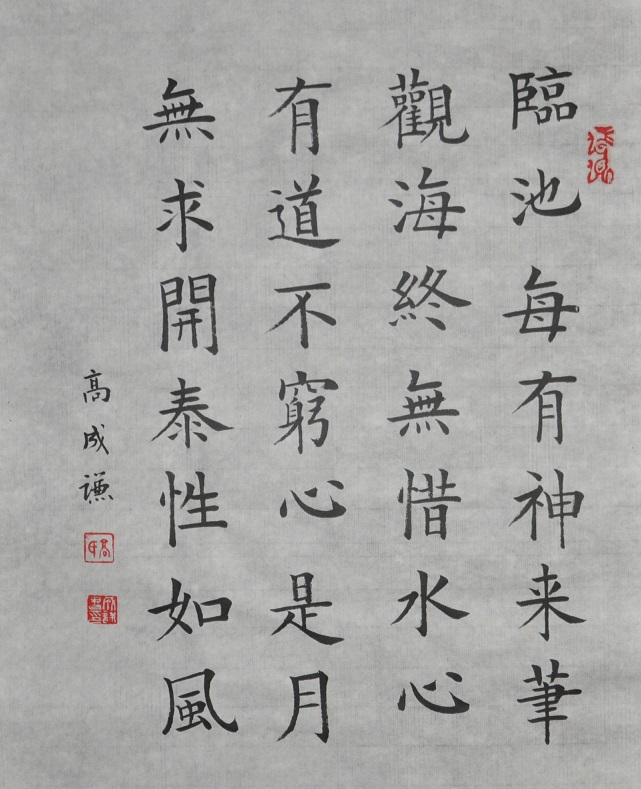 臨池每有神来筆
觀海終無惜水心
有道不窮心是月
無求開泰性如風
高成謙